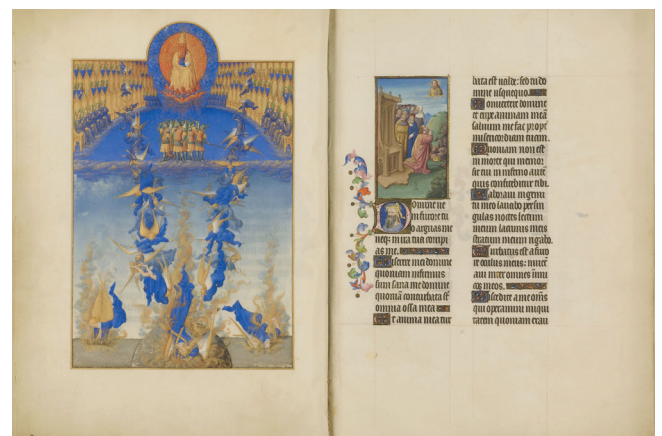 Domine ne
in furore tu
o arguas me
neq; in ira tua corripi
as me.
Miserere mei domine
quoniam infirmus
sum sana me domine
quoniā conturbata sūt
omnia ossa mea
Et anima mea tur
bata est valde: sed tu do
mine usquequo.
Convertere domine
et eripe animam meā
salvum me fac propt
misericordiam tuam.
Quoniam non est
in morte qui memor
sit tui in inferno autē
quis confitebitur tibi.
Laboravi in gemi
tu meo lavabo per sin
gulas noctes lectum
meum lacrimis meis
stratum meum rigabo.
Turbatus est a furo
re oculus meus: invet
avi inter omnes inimi
cos meos.
Discedite a me om̄s
qui operamini iniqui
tatem quoniam exau